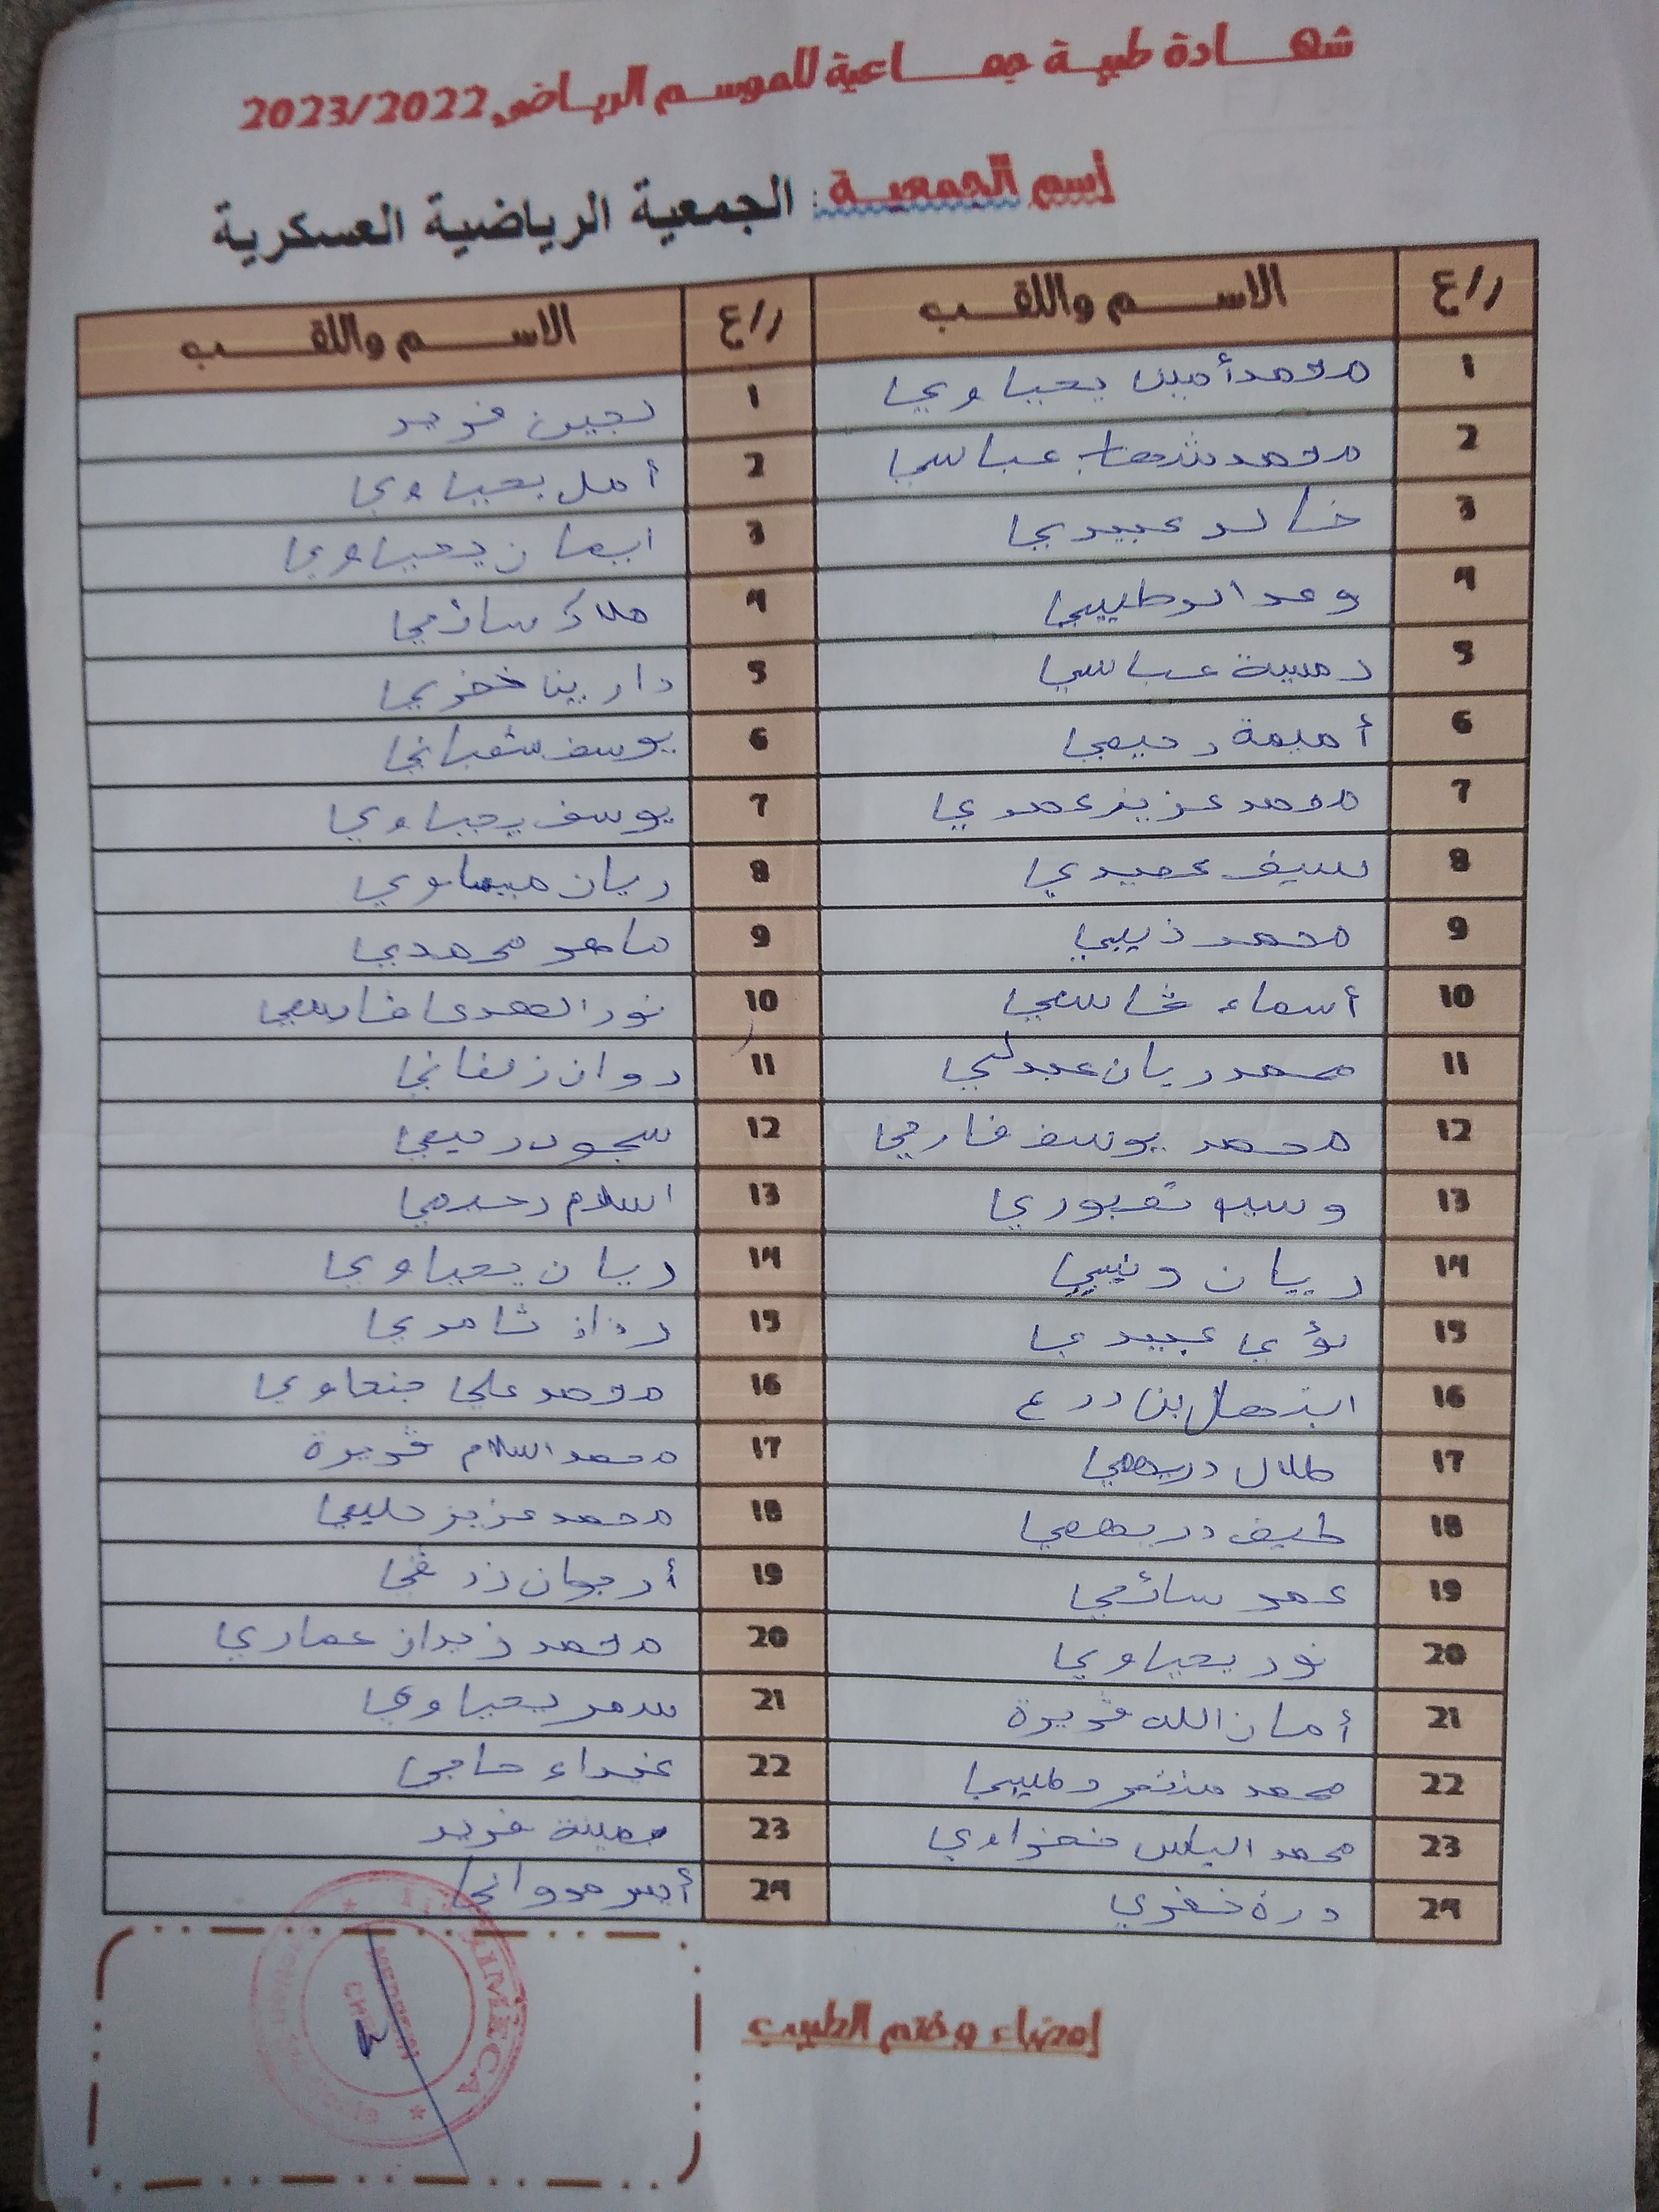 شهادة طبية جماعية للموسم الرياضي 2023/2022
إسم الجمعية: الجمعية الرياضية العسكرية
ر/ع الاسم واللقب ر/ع الاسم واللقب
1 محمد أمين يحياوي 1 لجين فريد
2 محمد شهاب عباسي 2 أمل يحياوي
3 خالد عبيدي 3 ايمان يحياوي
4 وعد الوطيبي 4 ملاك سائمي
5 عباسي 5 دارينا خضري
6 أميمة رحيمي 6 يوسف شعباني
7 محمد عزيز عمري 7 يوسف يحياوي
8 سيف عميدي 8 ريان ميساوي
9 محمد ذيبي 9 ماهر محمدي
10 أسماء قاسمي 10 نور الهدى قاسمي
11 محمد ريان عبدلي 11 روان زلفاني
12 محمد يوسف فارمي 12 سجود رحيمي
13 13 اسلام رحيمي
14 ريان 14 ريان يحياوي
15 لؤي عبيدي 15 رذاذ ثامري
16 ابتهال بن درع 16 محمد علي جنحاوي
17 طلال دريهمي 17 محمد اسلام قريرة
18 طيف دريهمي 18 محمد عزيز حليمي
19 عمر سائمي 19 أرجوان زرقي
20 نور يحياوي 20 محمد نزار عماري
21 أمان الله قريرة 21 سمر يحياوي
22 محمد منتصر وطيبي 22 غيداء حاجي
23 محمد الياس خضراوي 23 مينة فريد
24 درة خضري 24 أيسر مرواني
إمضاء وختم الطبيب